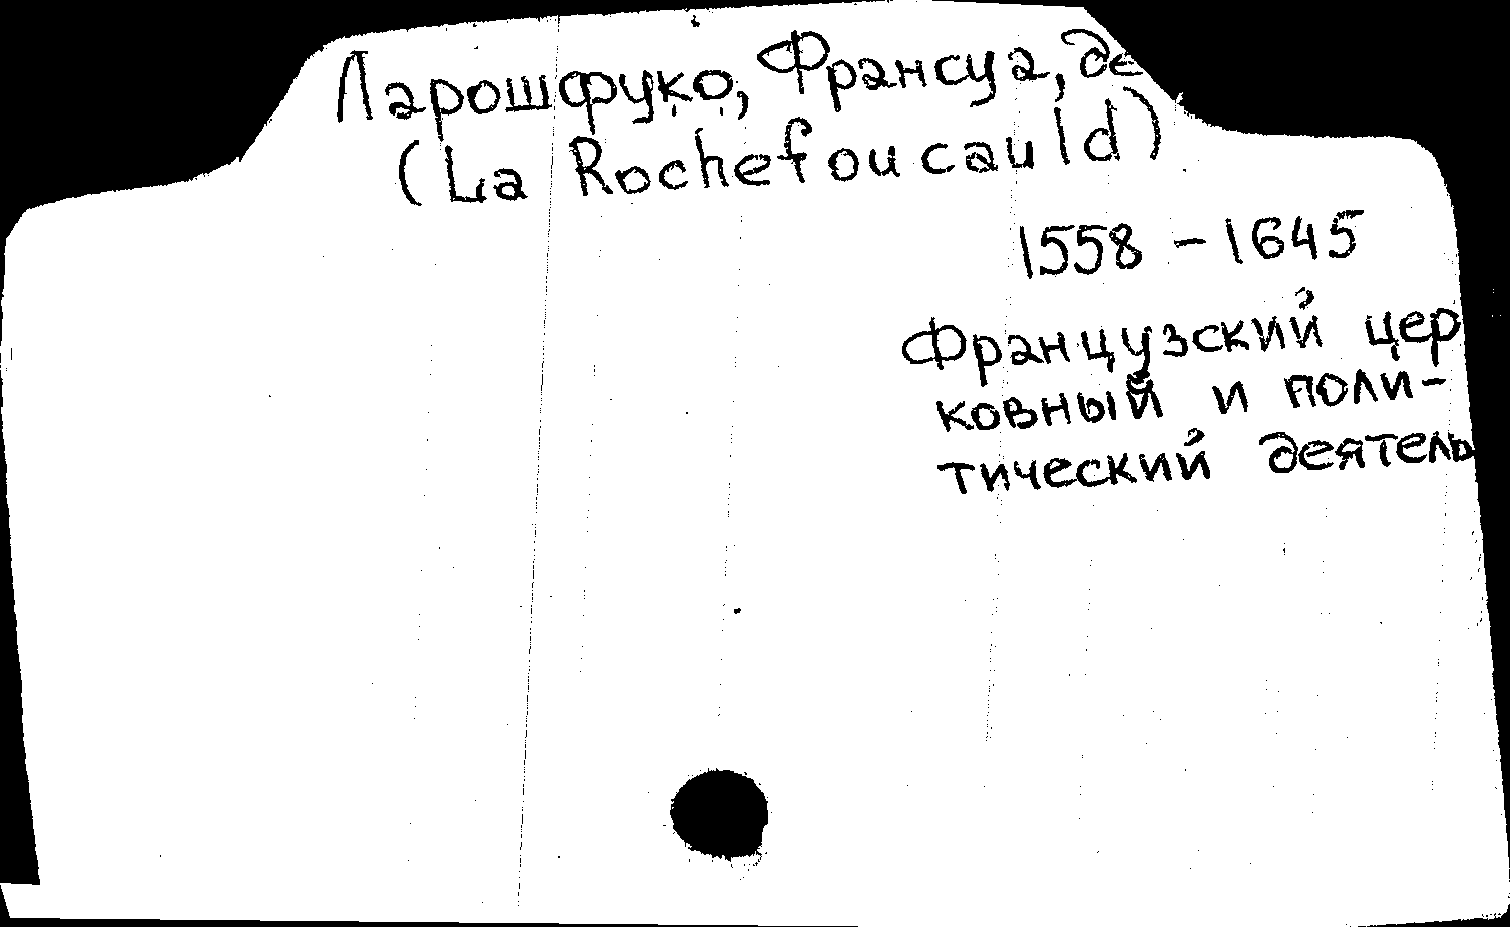 Ларошфуко, Франсуа, де
(La Rochefoucauld)
1558 - 1645
Французский цер
ковный и поли-
тический деятель